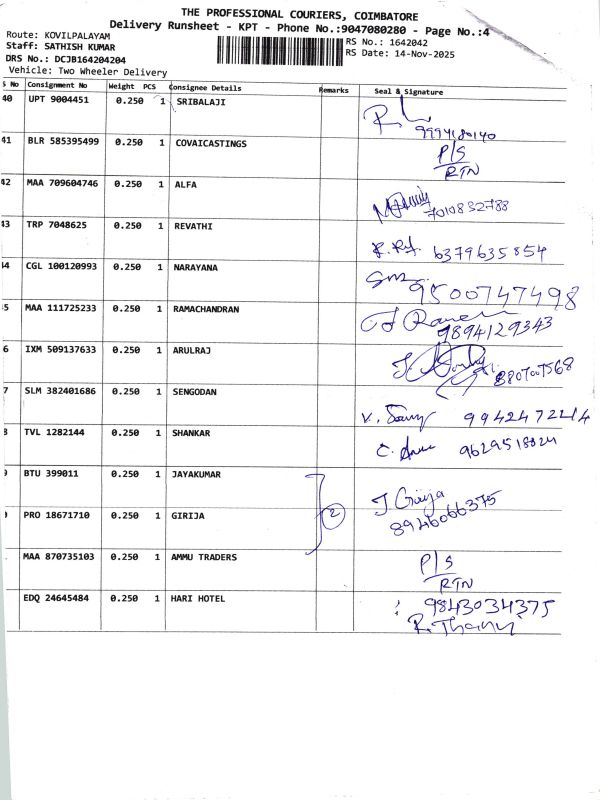 THE PROFESSIONAL COURIERS, COIMBATORE
Delivery Runsheet - KPT - Phone No.:9047080280 - Page No.:4
Route: KOVILPALAYAM
Staff: SATHISH KUMAR
DRS No.: DCJB164204204
Vehicle: Two Wheeler Delivery
RS No.: 1642042
RS Date: 14-Nov-2025
S No Consignment No Weight PCS Consignee Details Remarks Seal & Signature
40 UPT 9004451 0.250 1 SRIBALAJI
9994180140
41 BLR 585395499 0.250 1 COVAICASTINGS P/S
RTN
42 MAA 709604746 0.250 1 ALFA
7010832788
43 TRP 7048625 0.250 1 REVATHI
6379635854
44 CGL 100120993 0.250 1 NARAYANA
9500747498
5 MAA 111725233 0.250 1 RAMACHANDRAN
9894129343
6 IXM 509137633 0.250 1 ARULRAJ
8807007568
7 SLM 382401686 0.250 1 SENGODAN
9942472214
8 TVL 1282144 0.250 1 SHANKAR
9629518024
9 BTU 399011 0.250 1 JAYAKUMAR
J Girija
PRO 18671710 0.250 1 GIRIJA 2
8946066375
MAA 870735103 0.250 1 AMMU TRADERS P/S
RTN
EDQ 24645484 0.250 1 HARI HOTEL 9843034375